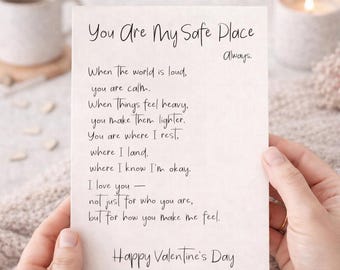 You Are My Safe Place
Always.
When the world is loud,
you are calm.
When things feel heavy,
you make them lighter.
You are where I rest,
where I land,
where I know I'm okay.
I love you —
not just for who you are,
but for how you make me feel.
Happy Valentine's Day